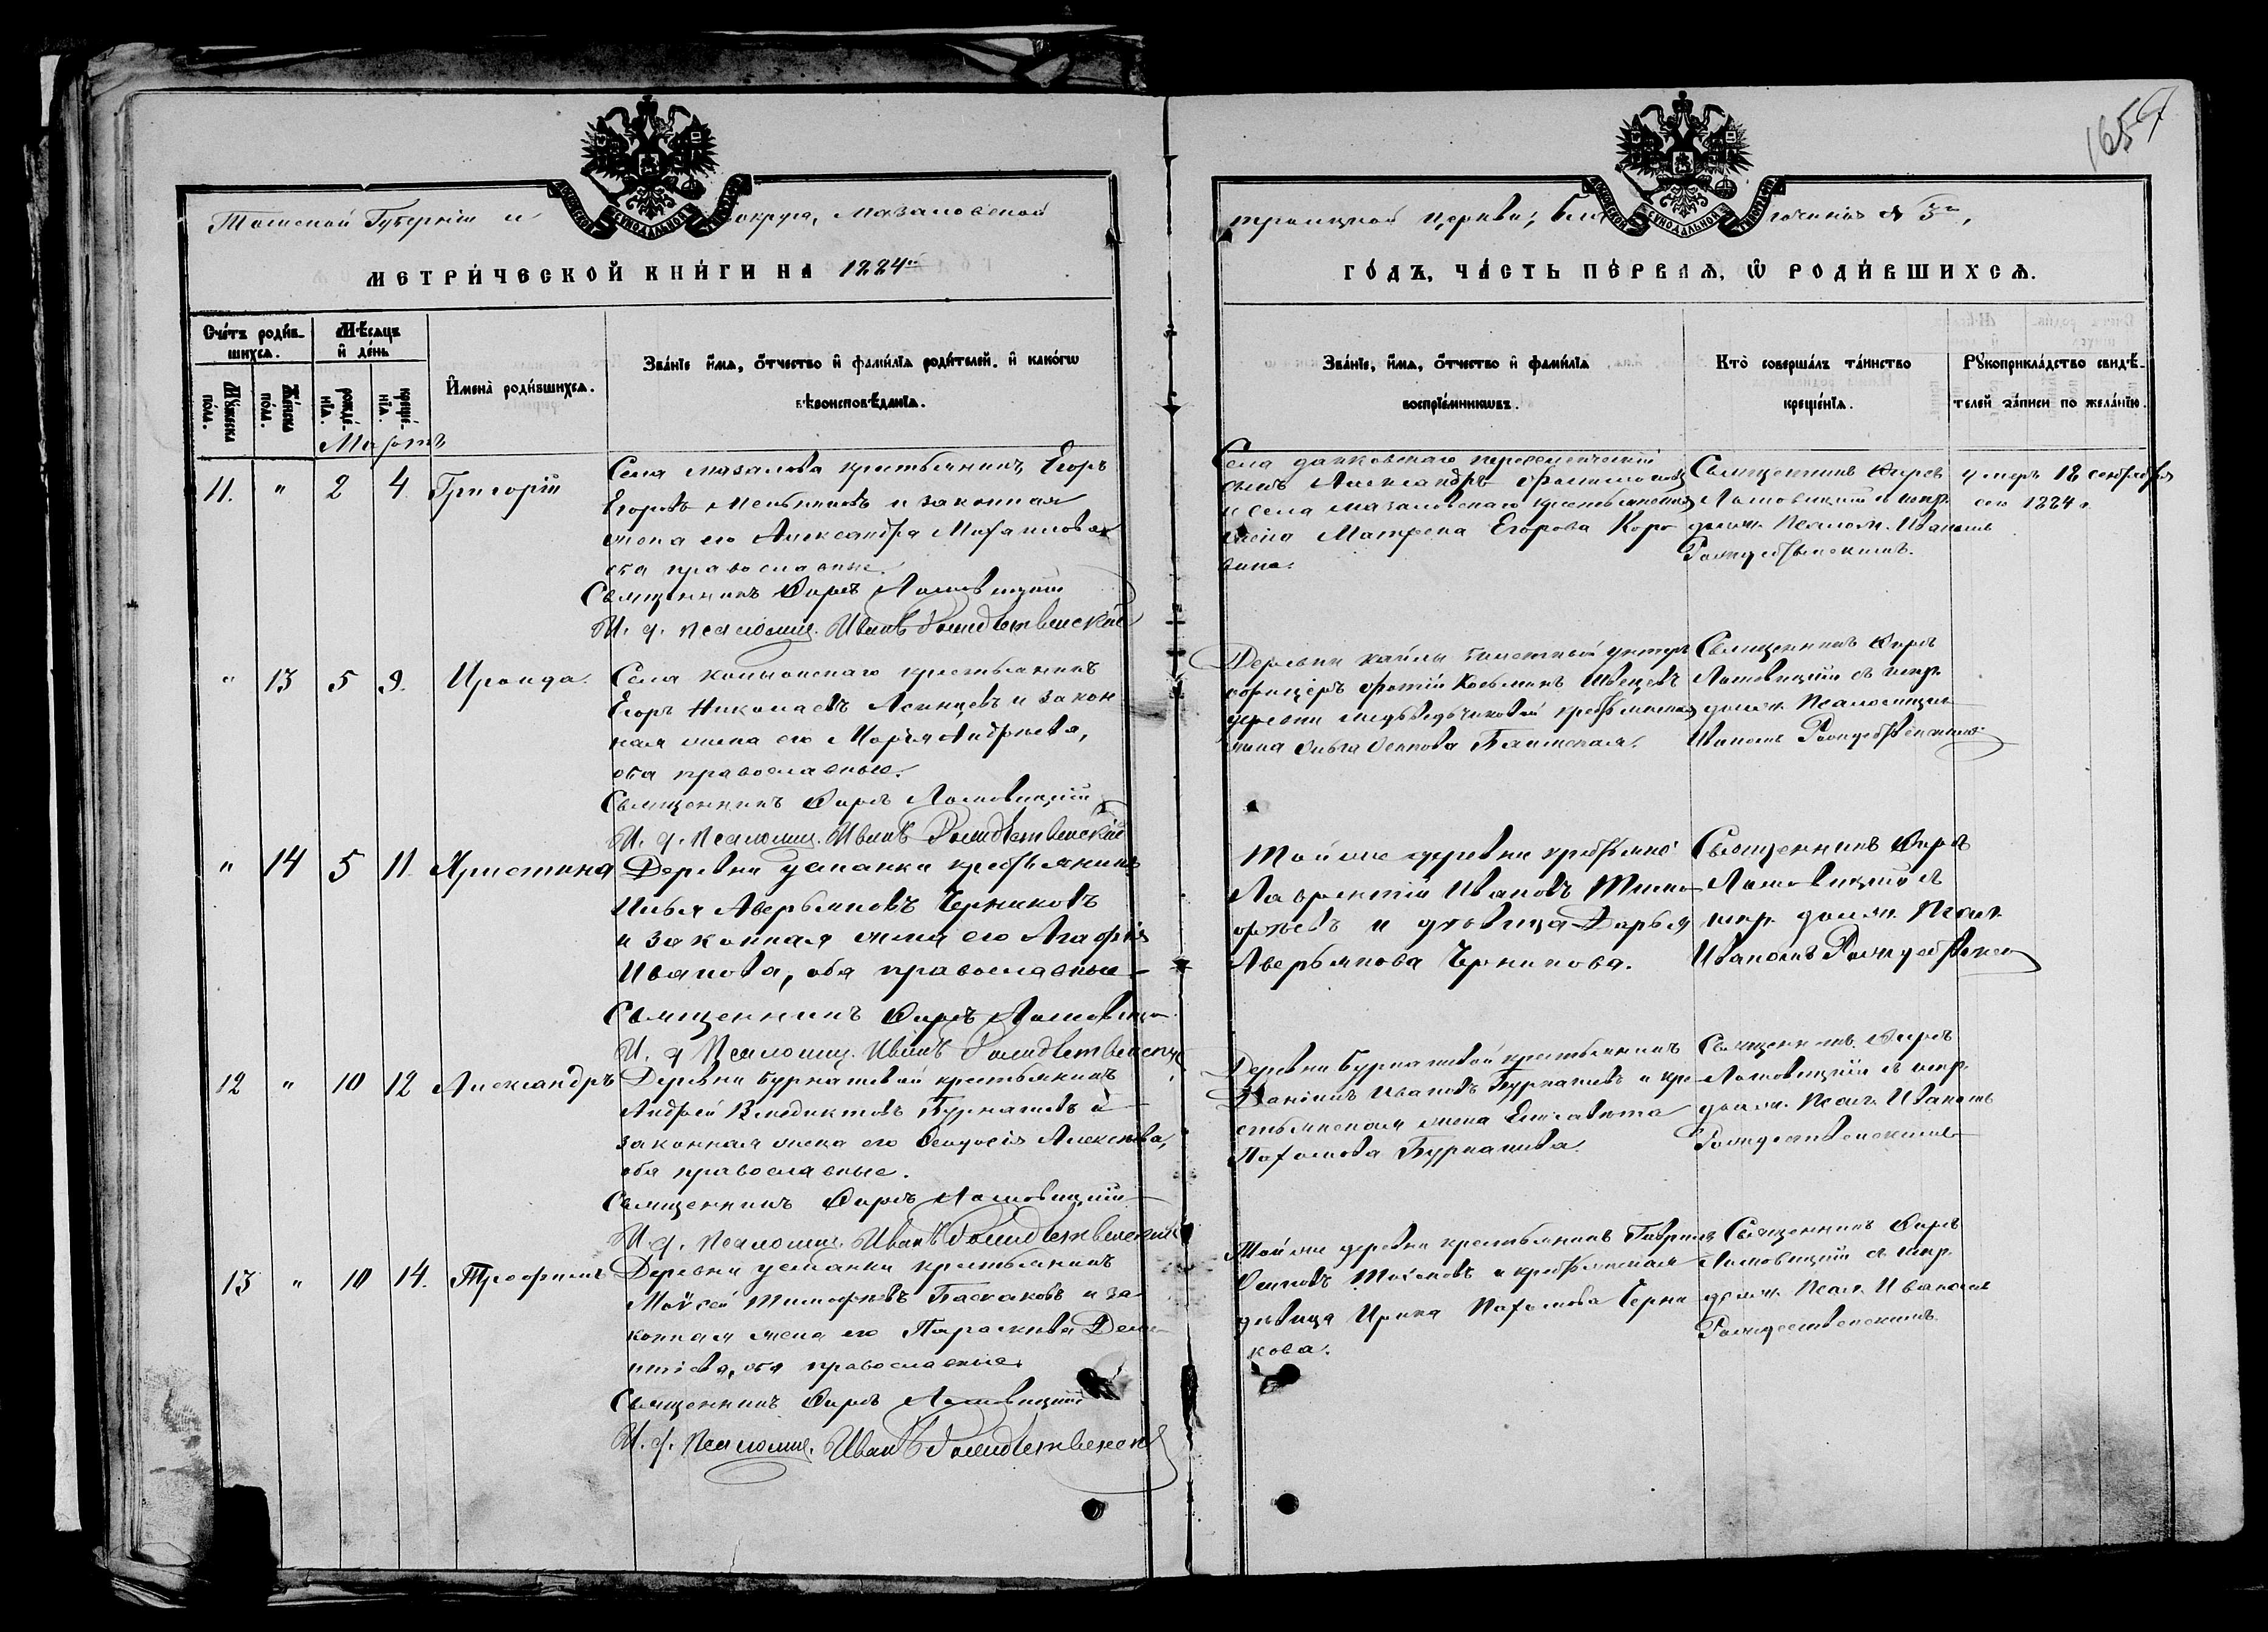 1654
Томской Губернiи и округа, Мазаловской
МЕТРИЧЕСКОЙ КНИГИ НА 1884й
Счетъ родившихся.
Мѣсяцъ и день
Мужеска пола.
Женска пола.
рожденiя.
крещенiя.
Имена родившихся.
Званiе имя, отчество и фамилiя родителей, и какогѡ вѣроисповѣданiя.
Мартъ
11. " 2 4 Григорiй
Села Мазалова крестьянинъ Егоръ
Егоровъ Мельниковъ и законная
жена его Александра Михаилова
оба православные.
Священникъ Киръ Ломовицкiй
И. д. псаломщ. Иванъ Рождественскiй
" 13 5 9. Ираида.
Села Копыонскаго крестьянинъ
Егоръ Николаевъ Асанцевъ и закон
ная жена его Марiя Андреева,
оба православные.
Священникъ Киръ Ломовицкiй
И. д. псаломщ. Иванъ Рождественскiй
" 14 5 11. Христина
Деревни Усманки крестьянинъ
Илья Аверьяновъ Черниковъ
и законная жена его Агафiя
Иванова, оба православные
Священникъ Киръ Ломовицкiй
И. д. Псаломщ. Иванъ Рождественскiй
12 " 10 12 Александръ
Деревни Бурнашевой крестьянинъ
Андрей Венедиктовъ Бурнашевъ и
законная жена его Феодосiя Алексеева,
оба православные.
Священникъ Киръ Ломовицкiй
И. д. псаломщ. Иванъ Рождественскiй
13 " 10 14. Трофимъ
Деревни Усманки крестьянинъ
Моѵсей Тимофѣевъ Баскаковъ и за
конная жена его Параскева Деме
нтiева, оба православные
Священникъ Киръ Ломовицкiй
И. д. псаломщ. Иванъ Рождественскiй
троицкой церкви, благочинiя № 5го,
ГОДЪ, ЧАСТЬ ПЕРВАЯ, Ѡ РОДИВШИХСЯ.
Званiе, имя, отчество и фамилiя воспрiемникѡвъ.
Кто совершалъ таинство крещенiя.
Рукоприкладство свидѣтелей записи по желанiю.
Села переселенческiй
сынъ Александръ Филимоновъ
и села Мазаловскаго крестьянская
жена Матрена Егорова Коро
вина.
Священникъ Киръ
Ломовицкiй с испр.
должн. Псалом. Иваномъ
Рождественскимъ.
умеръ 18 сентября
сего 1884 г.
Деревни Кайлы билетный унтеръ
офицеръ Фотiй Козьминъ Швецовъ
деревни Медьведчиковой крестьянская
жена Ольга Осипова
Священникъ Киръ
Ломовицкiй съ испр.
должн. Псаломщика
Иваномъ Рождественскимъ
Той же деревни крестьяне
Лаврентiй Ивановъ Тимо
фѣевъ и дѣвица Дарья
Аверьянова Черникова.
Священникъ Киръ
Ломовицкiй съ
испр. должн. Псал.
Иваномъ Рождественск
Деревни Бурнашевой крестьянинъ
Данiилъ Ивановъ Бурнашевъ и кре
стьянская жена Елисавета
Пахомова Бурнашева.
Священникъ Киръ
Ломовицкiй съ испр.
должн. Псал. Иваномъ
Рождественскимъ
Той же деревни крестьянинъ Гаврiилъ
Осиповъ и крестьянская
дѣвица Ирина Пахомова Черни
кова.
Священникъ Киръ
Ломовицкiй съ испр.
должн. Псал. Иваномъ
Рождественскимъ.